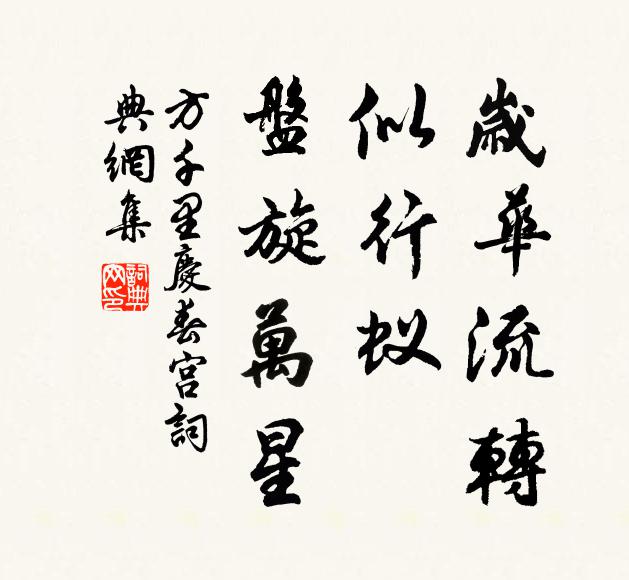 歲華流轉
似行蚁
盤旋萬星
方千里慶春宮詞
典網集
詞典网印